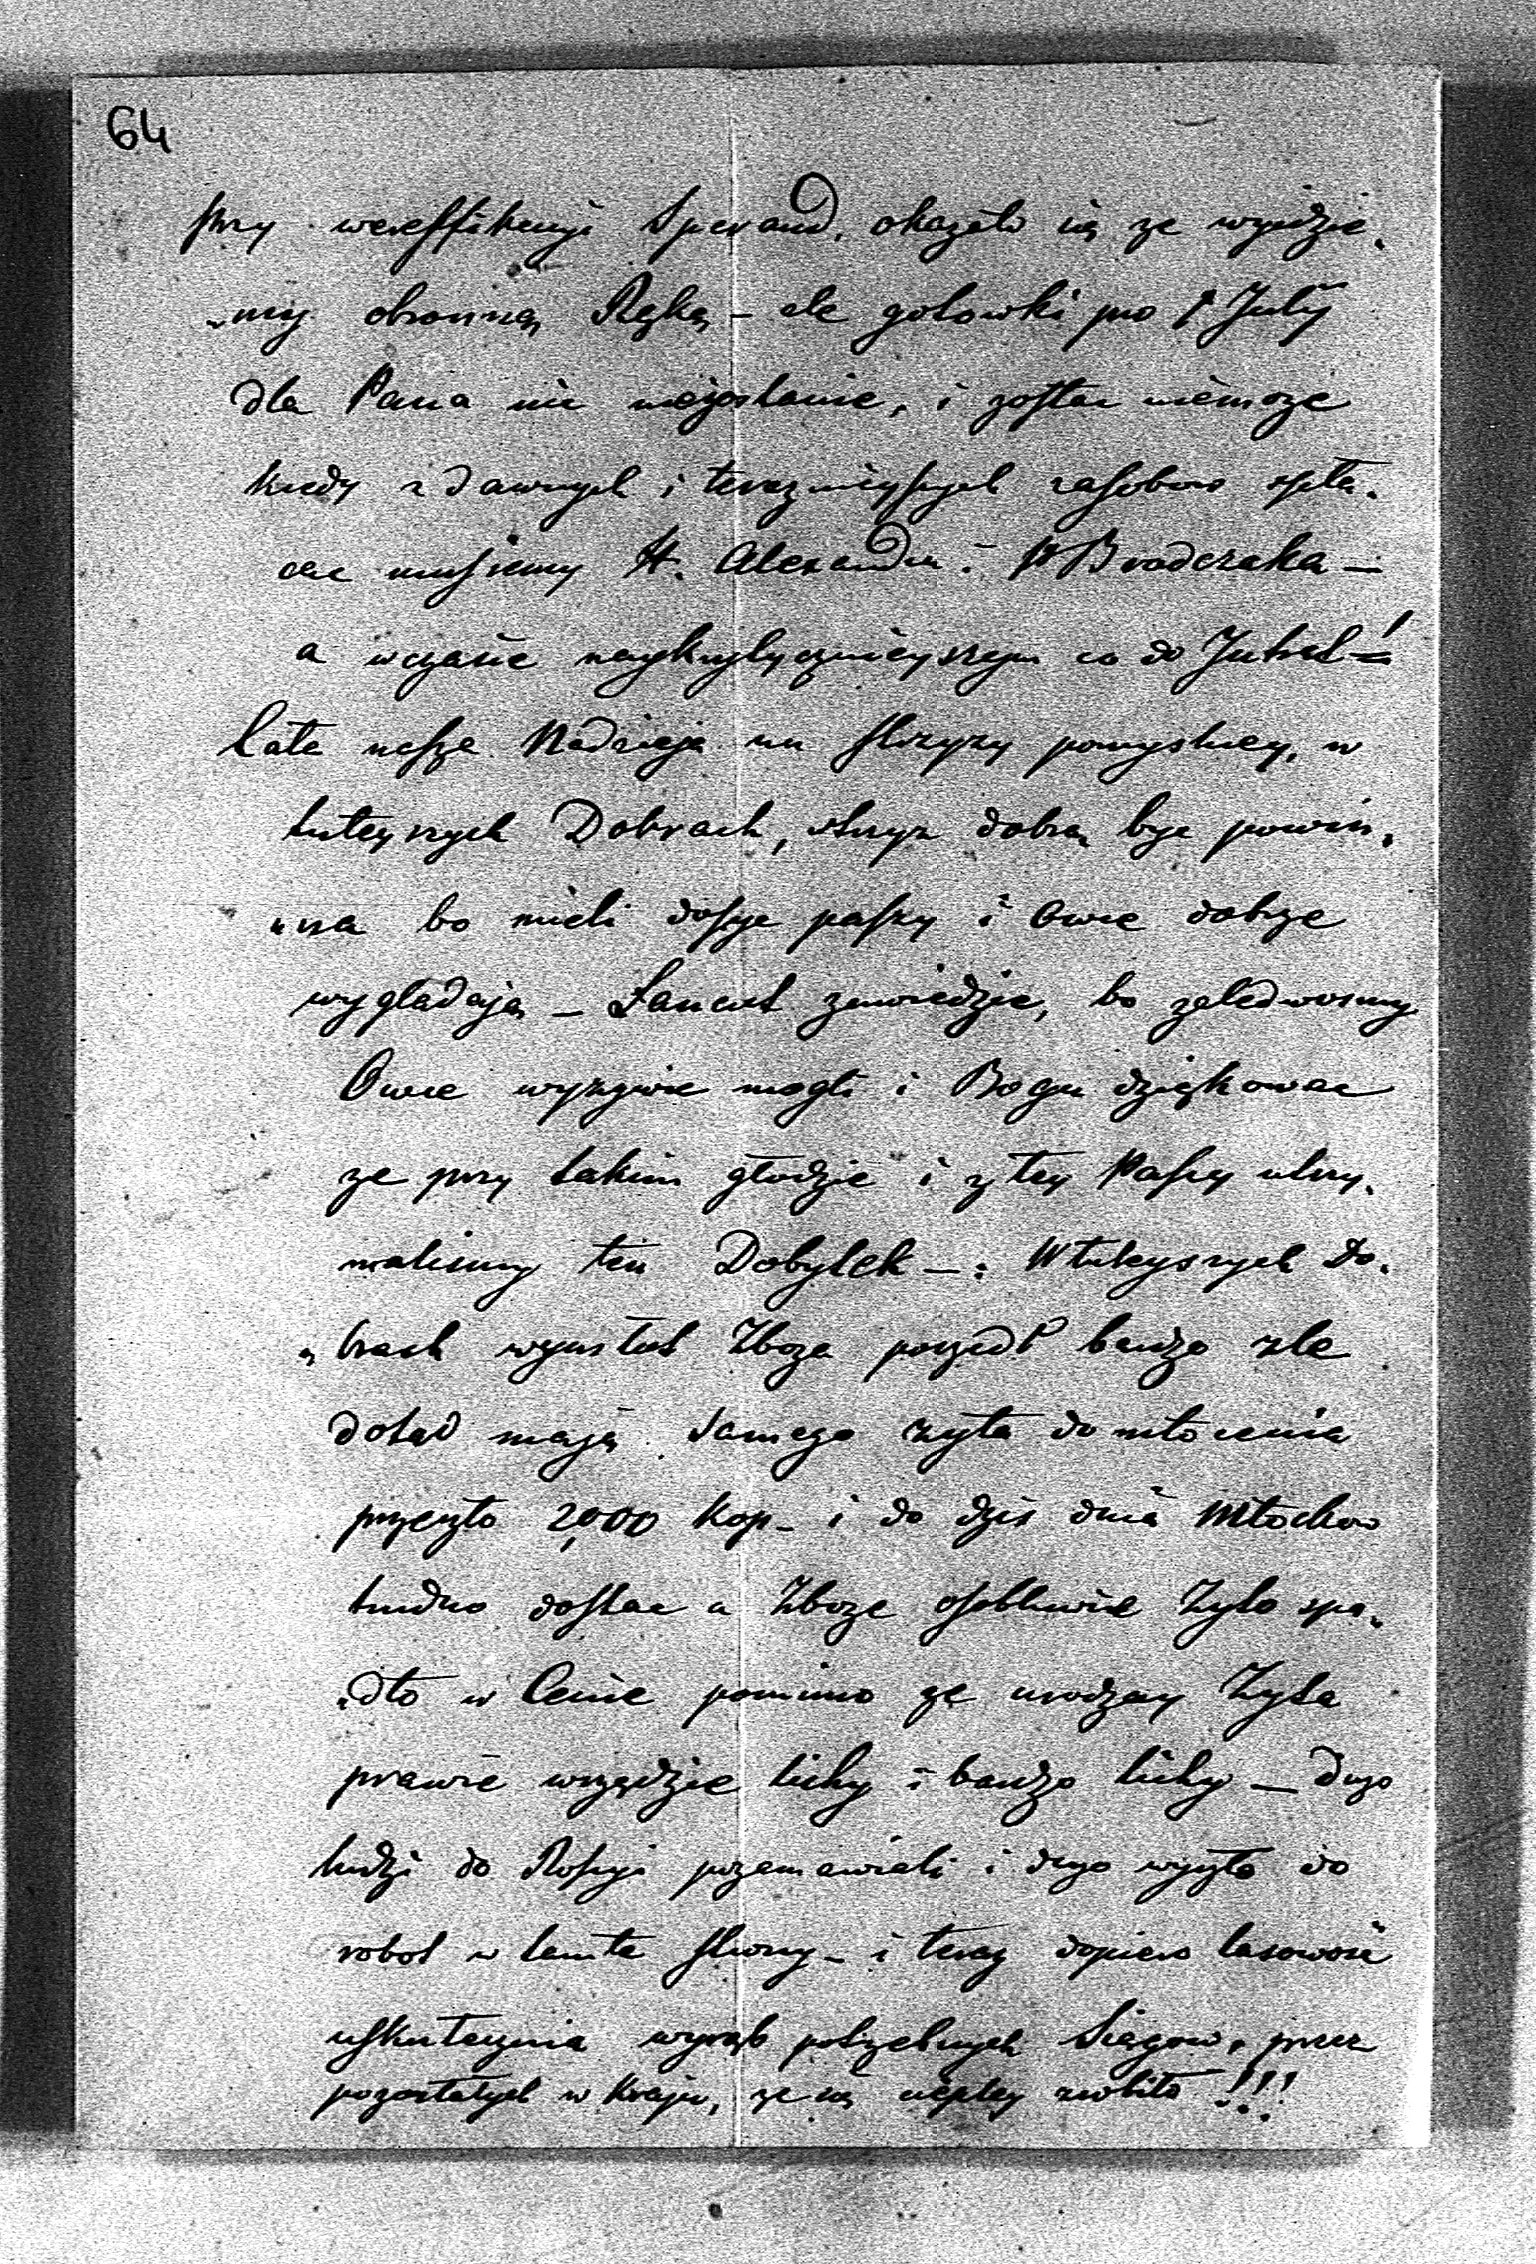 64
przy wereffikacyi Sperand. okazało się ze wyjdzie„
„my obronną Ręką – ale gotowki pro 1 July
dla Pana nic niezostanie, i zostac niemoze
kiedy z dawnych i teraznieyszych zasobow spła„
cac musiemy H. Alexandra i Brodczaka –
a wczasie naykrytycznieyszym co do
Cała nasza Nadzieja na strzyzy pomyslney, w
tuteyszych Dobrach, strzyz dobrą byc powin„
„na bo mieli dosyc paszy i Owce dobrze
wygladają – Lancut zawiedzie, bo zaledwosmy
Owce wyzywic mogli i Bogu dziękowac
ze przy takim głodzie i złey Paszy utrzy„
malismy ten Dobytek –. W tuteyszych Do„
„brach wymłot Zboza poszedł bardzo zle
dotad mają samego zyta do młocenia
przeszło 2,000 kop – i do dzis dnia Młockow
trudno dostac a Zboze osobliwie Zyto spa„
„dło w Cenie pomimo ze urodzay Zyta
prawie wszędzie lichy i bardzo lichy – duzo
ludzi do Rossyi przemawiali i duzo wyszło do
robot w tamte strony – i teraz dopiero
uskutecznia wyrąb potrzebnych Siągow, przez
pozostałych w Kraju, ze się ciepley zrobiło !!!